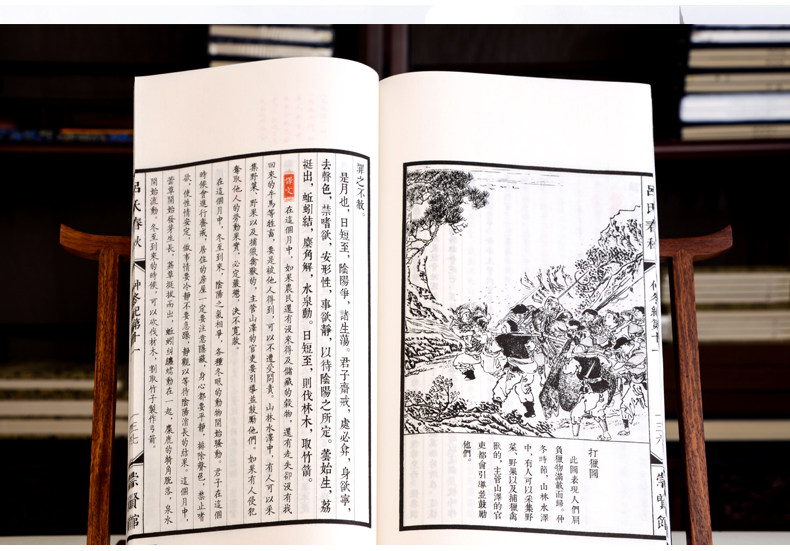 呂氏春秋
仲冬紀第十一
一三六
崇賢館
打獵圖
此圖表現人們肩
負獵物滿載而歸。仲
冬時節，山林水澤
中，有人可以采集野
菜、野果以及捕獵禽
獸的，主管山澤的官
吏都會引導並鼓勵
他們。
罪之不赦。
是月也，日短至，陰陽爭，諸生蕩。君子齋戒，處必弇，身欲寧，
去聲色，禁嗜欲，安形性，事欲靜，以待陰陽之所定。蕓始生，荔
挺出，蚯蚓結，麋角解，水泉動。日短至，則伐林木，取竹箭。
譯文 在這個月中，如果農民還有沒來得及儲藏的穀物，還有走失卻沒有找
回來的牛馬等牲畜，要是被他人得到，可以不遭受問責。山林水澤中，有人可以采
集野菜、野果以及捕獵禽獸的，主管山澤的官吏要引導並鼓勵他們。如果有人侵犯
奪取他人的勞動果實，必定嚴懲，決不寬赦。
在這個月中，冬至到來，陰陽之氣相爭，各種冬眠的動物開始騷動。君子在這個
時候會進行齋戒，居住的房屋一定要注意隱蔽，身心都要平靜，排除聲色，禁止嗜
欲，使性情安定，做事情要冷靜不要急躁，靜觀以等待陰陽消長的結果。這個月中，
蕓草開始發芽生長，荔草挺拔而出，蚯蚓糾纏蠕動在一起，麋鹿的犄角脫落，泉水
開始流動。冬至到來的時候，可以砍伐材木，割取竹子製作弓箭。
呂氏春秋
仲冬紀第十一
一三七
崇賢館